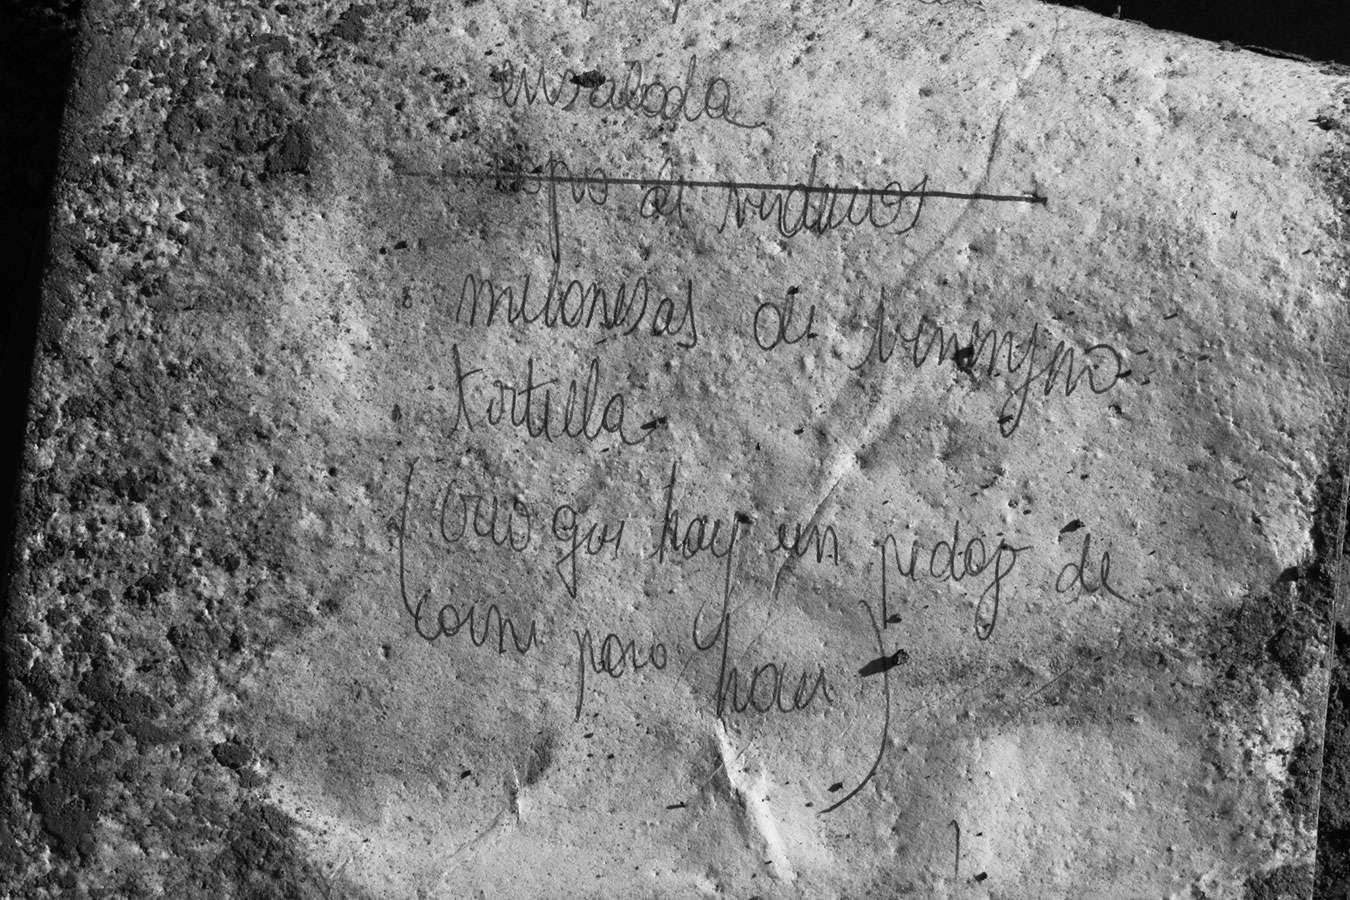 ensalada
sopa de verduras
milanesas de berenjena
tortilla
(creo que hay un pedazo de
carne para hacer)